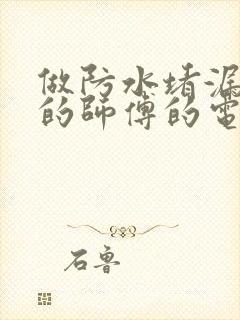 做防水堵漏
的師傅的電
石魯